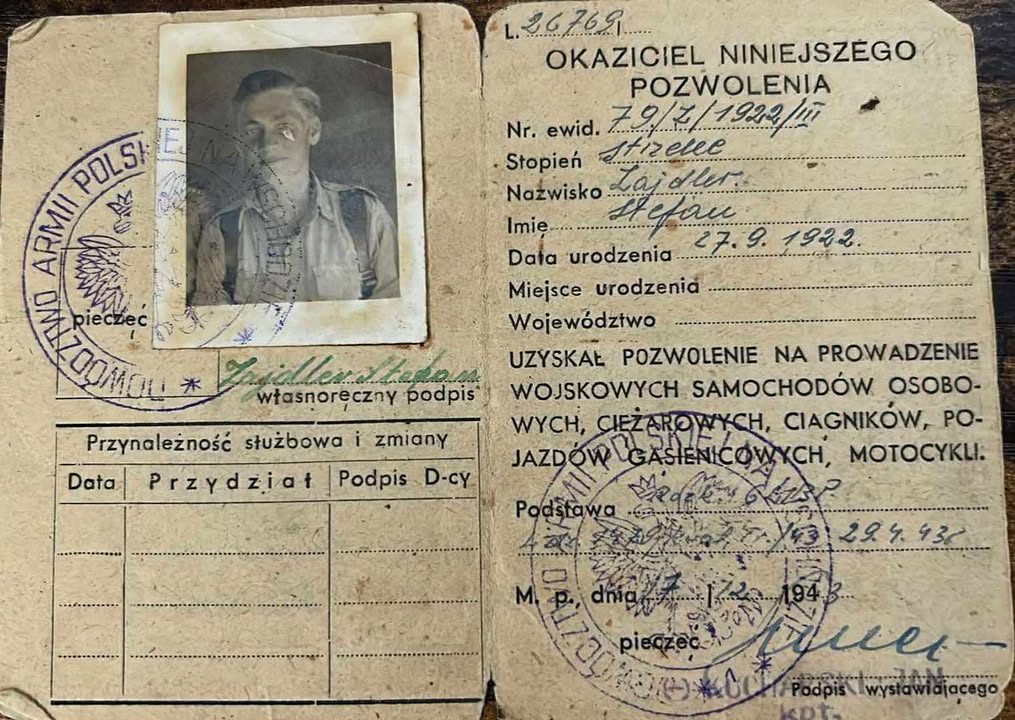 DOWÓDZTWO ARMII POLSKIEJ NA WSCHODZIE
pieczęć
Zajdler Stefan
własnoręczny podpis
Przynależność służbowa i zmiany
Data Przydział Podpis D-cy
L. 26769
OKAZICIEL NINIEJSZEGO
POZWOLENIA
Nr. ewid. 79/Z/1922/III
Stopień strzelec
Nazwisko Zajdler
Imię Stefan
Data urodzenia 27.9.1922.
Miejsce urodzenia
Województwo
UZYSKAŁ POZWOLENIE NA PROWADZENIE
WOJSKOWYCH SAMOCHODÓW OSOBO-
WYCH, CIĘŻAROWYCH, CIAGNIKÓW, PO-
JAZDÓW GĄSIENICOWYCH, MOTOCYKLI.
Podstawa Rozk. 6
/43 29.4.43r
M. p. dnia 7 12 1943
pieczęć
DOWÓDZTWO ARMII POLSKIEJ NA WSCHODZIE
(-) KUCHARSKI JAN
Podpis wystawiającego
kpt.